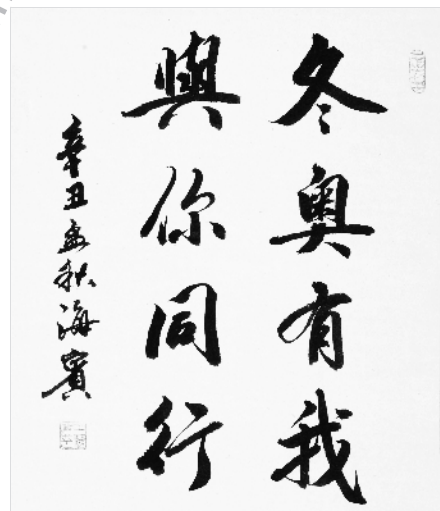 冬奥有我
與你同行
辛丑孟秋海賓